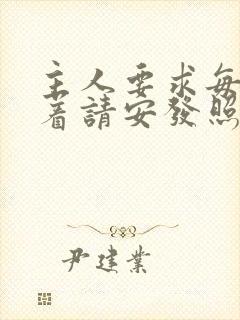 主人要求每
着請安發照
尹建業